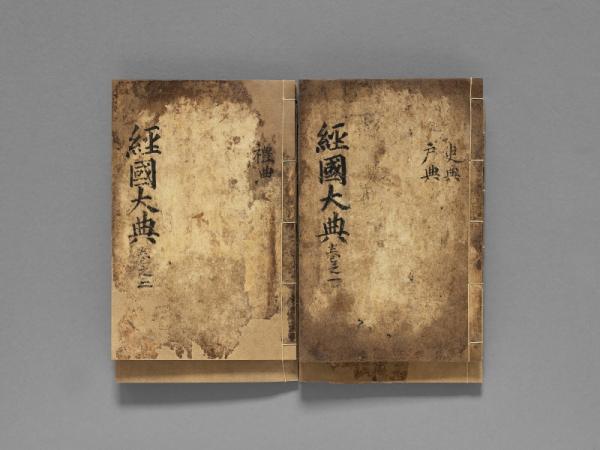 經國大典 卷之一
吏典
户典
經國大典 卷之二
禮典